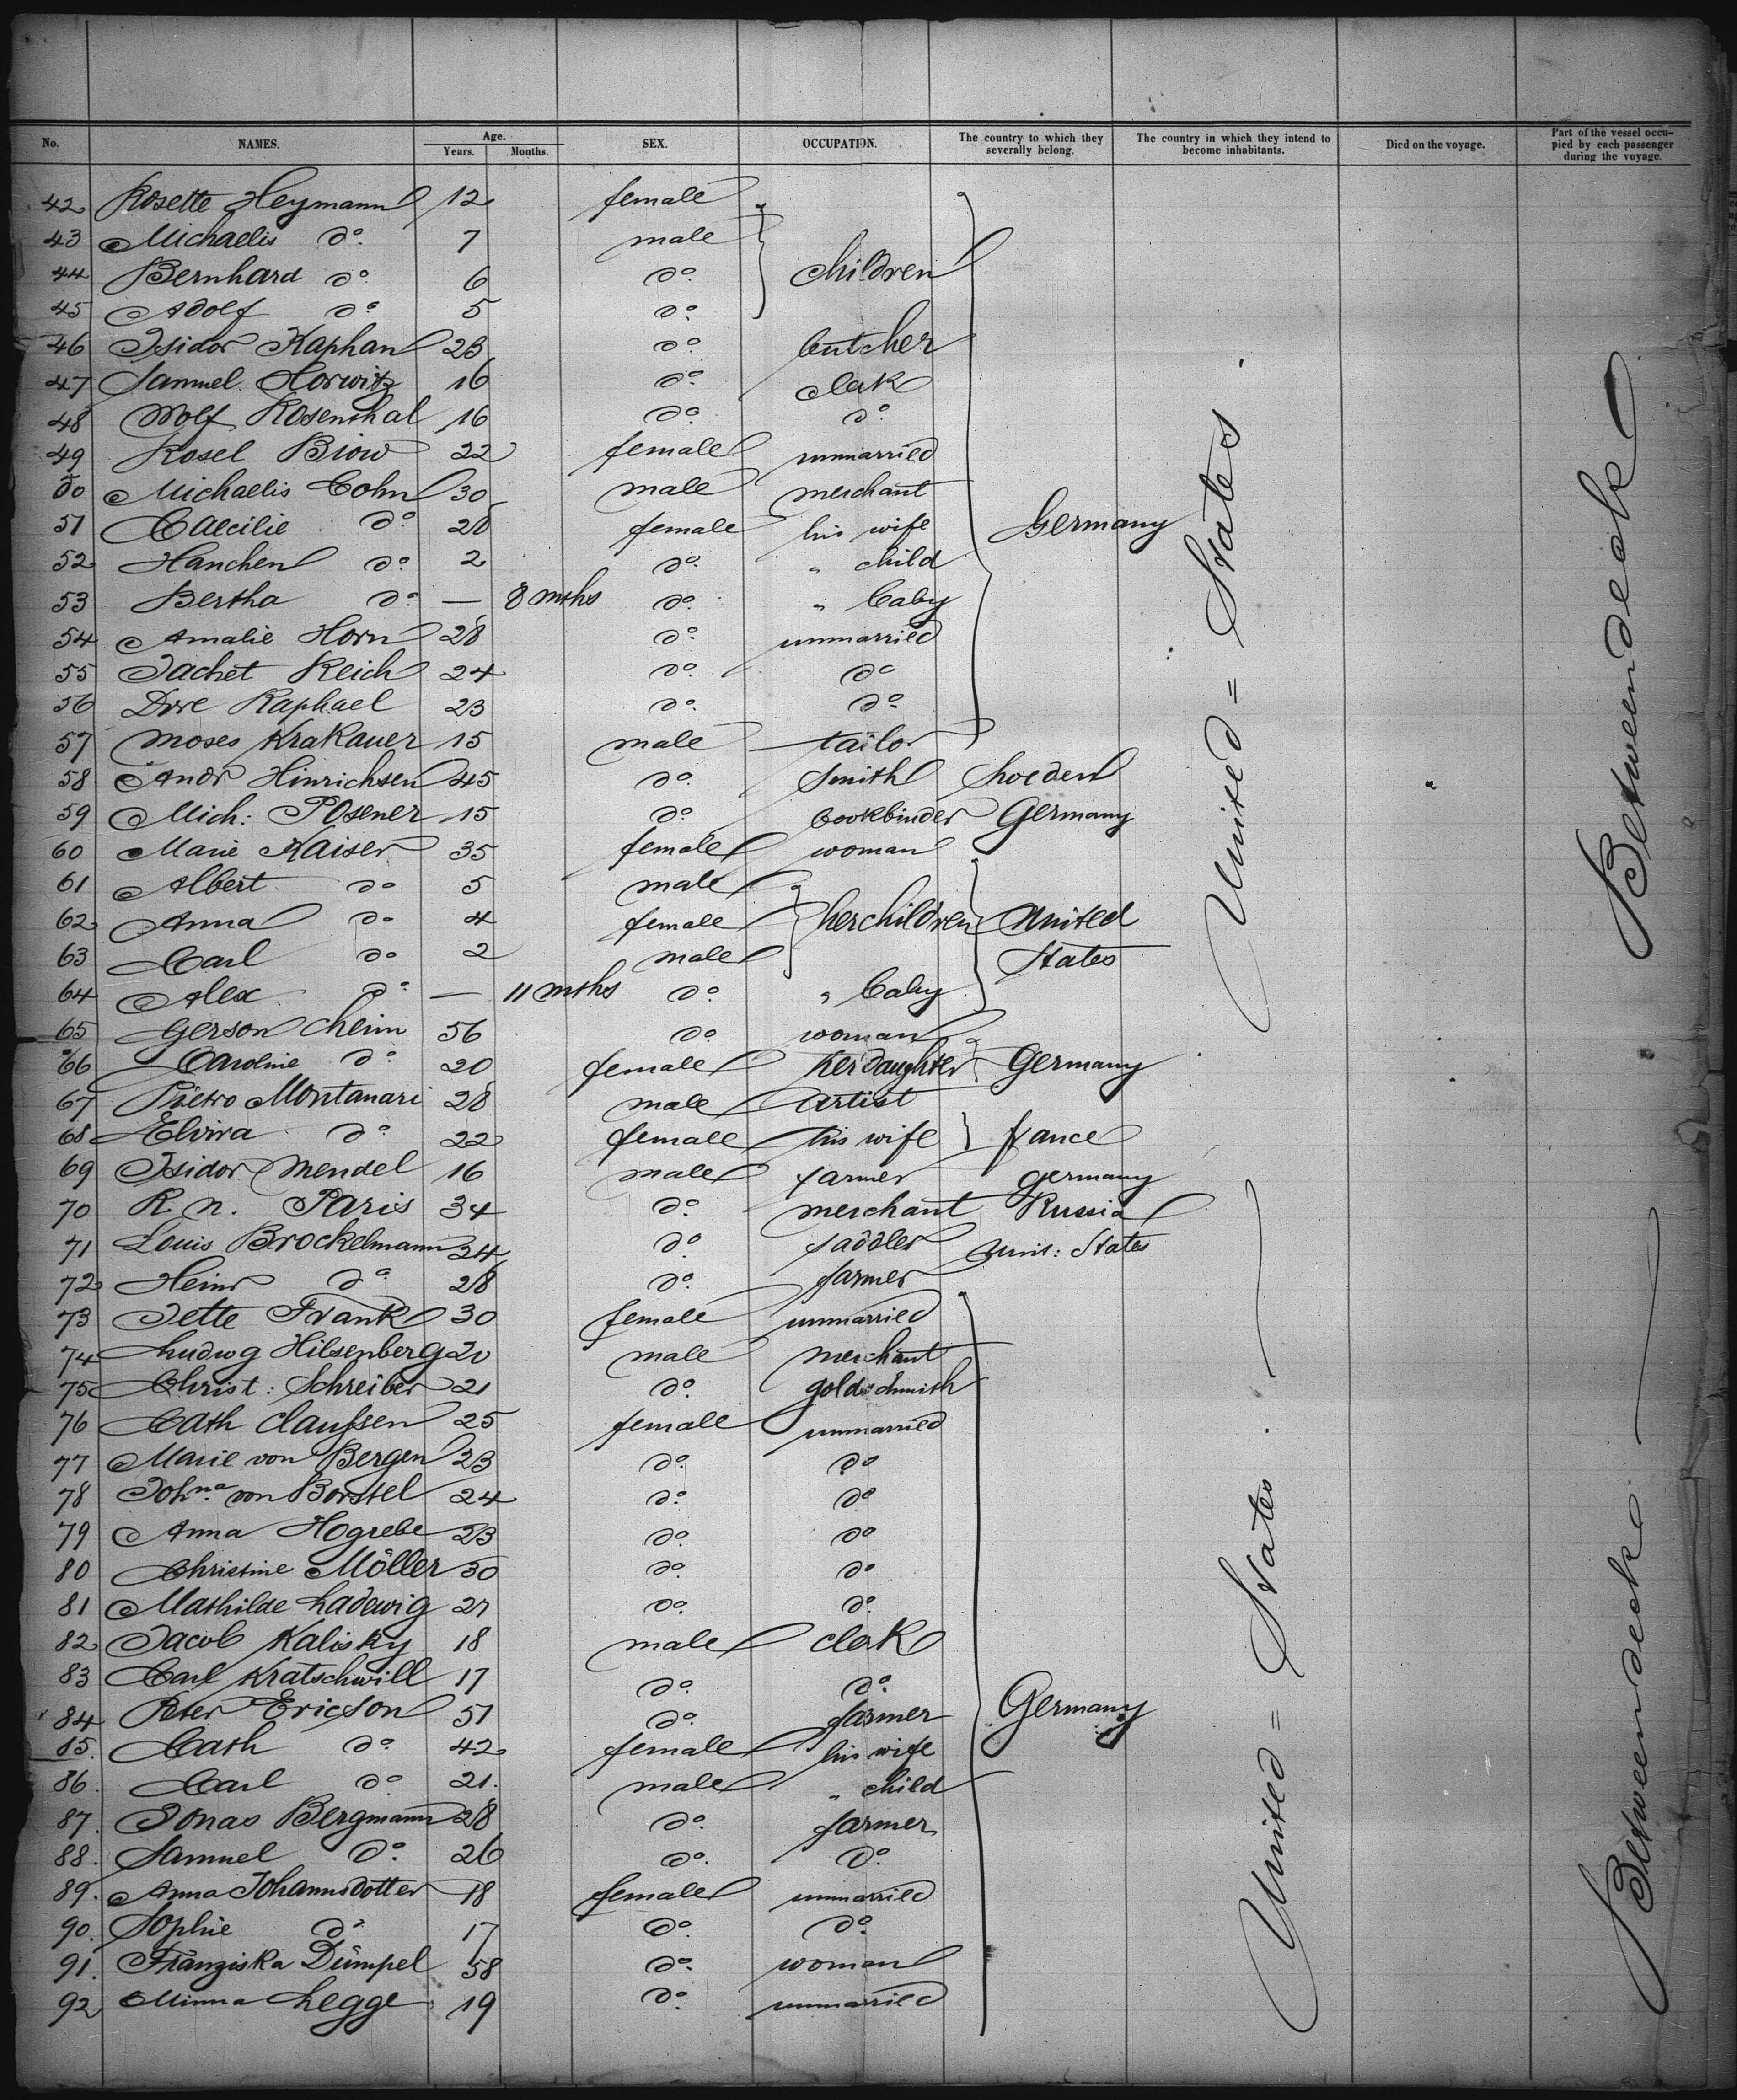 No. NAMES. Age. Years. Months. SEX. OCCUPATION. The country to which they severally belong. The country in which they intend to become inhabitants. Died on the voyage. Part of the vessel occupied by each passenger during the voyage.
42 Rosette Heymann 12 female
43 Michaelis do. 7 male
44 Bernhard do 6 do. children
45 Adolf do 5 do.
46 Isidor Kaphan 23 do. butcher
47 Samuel Horwitz 16 do. clerk
48 Wolf Rosenthal 16 do. do.
49 Rosel Biow 22 female unmarried
50 Michaelis Cohn 30 male merchant
51 Caecilie do. 28 female his wife Germany
52 Hanchen do. 2 do. " child
53 Bertha do. — 8 mths do. " baby
54 Amalie Horn 28 do. unmarried
55 Jachet Reich 24 do. do
56 Dore Raphael 23 do. do.
57 Moses Krakauer 15 male tailor
58 Andr Hinrichsen 45 do. smith Sweden
59 Mich: Posener 15 do bookbinder Germany
60 Marie Kaiser 35 female woman
61 Albert do 5 male
62 Anna do 4 female her children United
63 Carl do 2 male States
64 Alex do — 11 mths do. " baby
65 Gerson Cheim 56 do woman
66 Caroline do 20 female her daughter Germany
67 Pietro Montanari 28 male artist
68 Elvira do 22 female his wife france
69 Isidor Mendel 16 male farmer germany
70 R. n. Paris 34 do. merchant Russia
71 Louis Brockelmann 24 do. saddler Unit: States
72 Heinr do 28 do. farmer
73 Jette Frank 30 female unmarried
74 Ludwg Hilsenberg 20 male merchant
75 Christ: Schreiber 21 do. goldschmith
76 Cath Claussen 25 female unmarried
77 Marie von Bergen 23 do. do
78 Johna von Borstel 24 do. do
79 Anna Hogrebe 23 do. do
80 Christine Möller 30 do. do
81 Mathilde Ladewig 27 do. do.
82 Jacob Kalisky 18 male clerk
83 Carl Kratschwill 17 do. do.
84 Peter Ericson 51 do. farmer Germany
85. Cath do. 42 female his wife
86. Carl do 21. male " child
87. Jonas Bergmann 28 do. farmer
88. Samuel do. 26 do. do.
89. Anna Johannsdotter 18 female unmarried
90. Sophie do 17 do. do.
91. Franziska Dümpel 58 do. woman
92 Minna Legge 19 do. unmarried
United = States.
United = States.
Betweendeck
Betweendeck